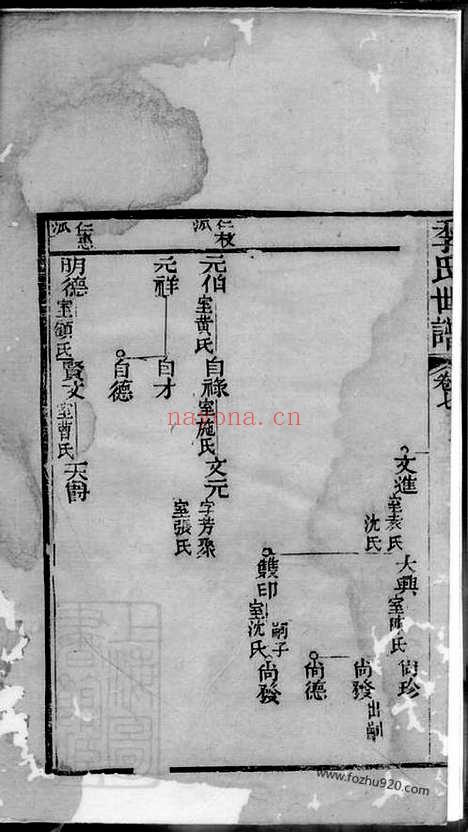 季氏世譜 卷七
文進 室袁氏 沈氏
大興 室陳氏
尚珍
尚發 出嗣
尚德
雙印 室沈氏
嗣子 尚發
仁枝派
元伯 室黃氏
自祿 室施氏
文元 字芳聚 室張氏
元祥
自才
自德
仁惠派
明德 室顧氏
賢文 室曹氏
天爵
nayona.cn
www.fozhu920.com